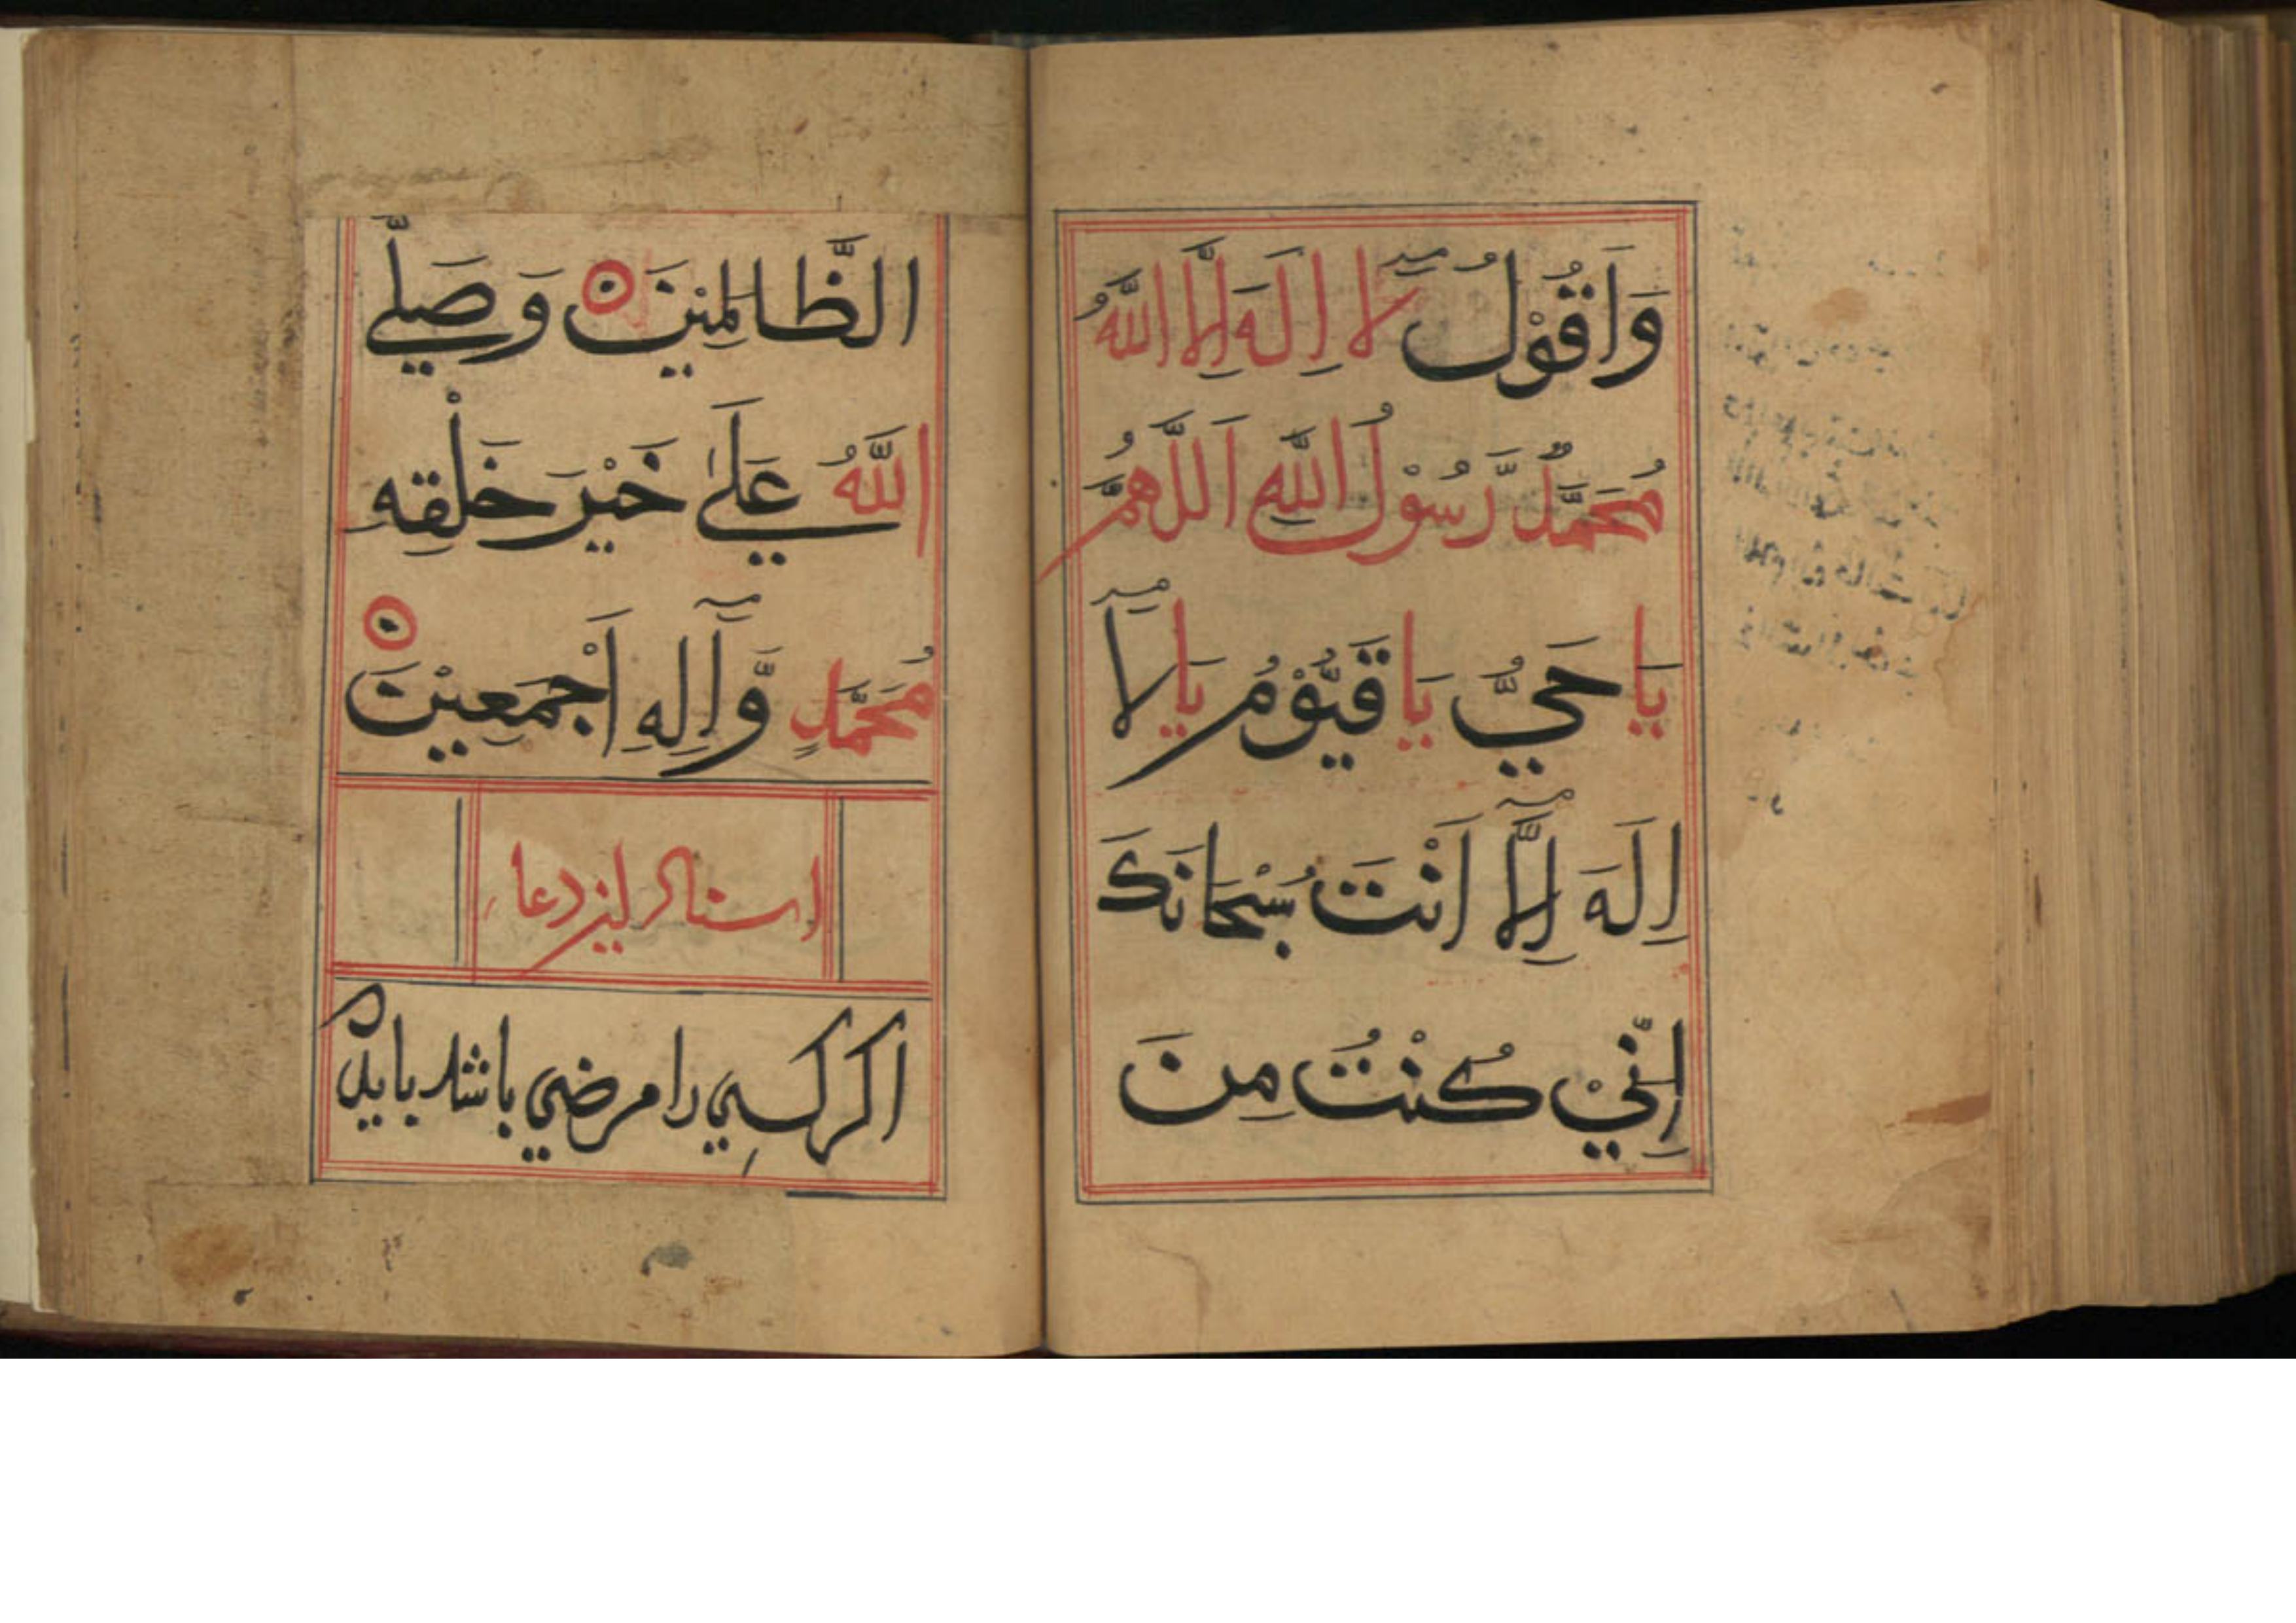 وَاَقُوْلُ لَا اِلَهَ اِلَّا اللَّهُ
مُحَمَّدٌ رَّسُوْلُ اللَّهِ اَللَّهُمَّ
يَا حَيُّ يَا قَيُّوْمُ يَا لَآ
اِلَهَ اِلَّآ اَنْتَ سُبْحَانَكَ
اِنِّيْ كُنْتُ مِنَ
الظَّالِمِيْنَ وَصَلَّے
اللَّهُ عَلَےٰ خَيْرَ خَلْقِه
مُحَمَّدٍ وَّآلِهِ اَجْمَعِيْنَ
اسناد اين دعا
اكر كسِي را مرضي باشد بايد كه